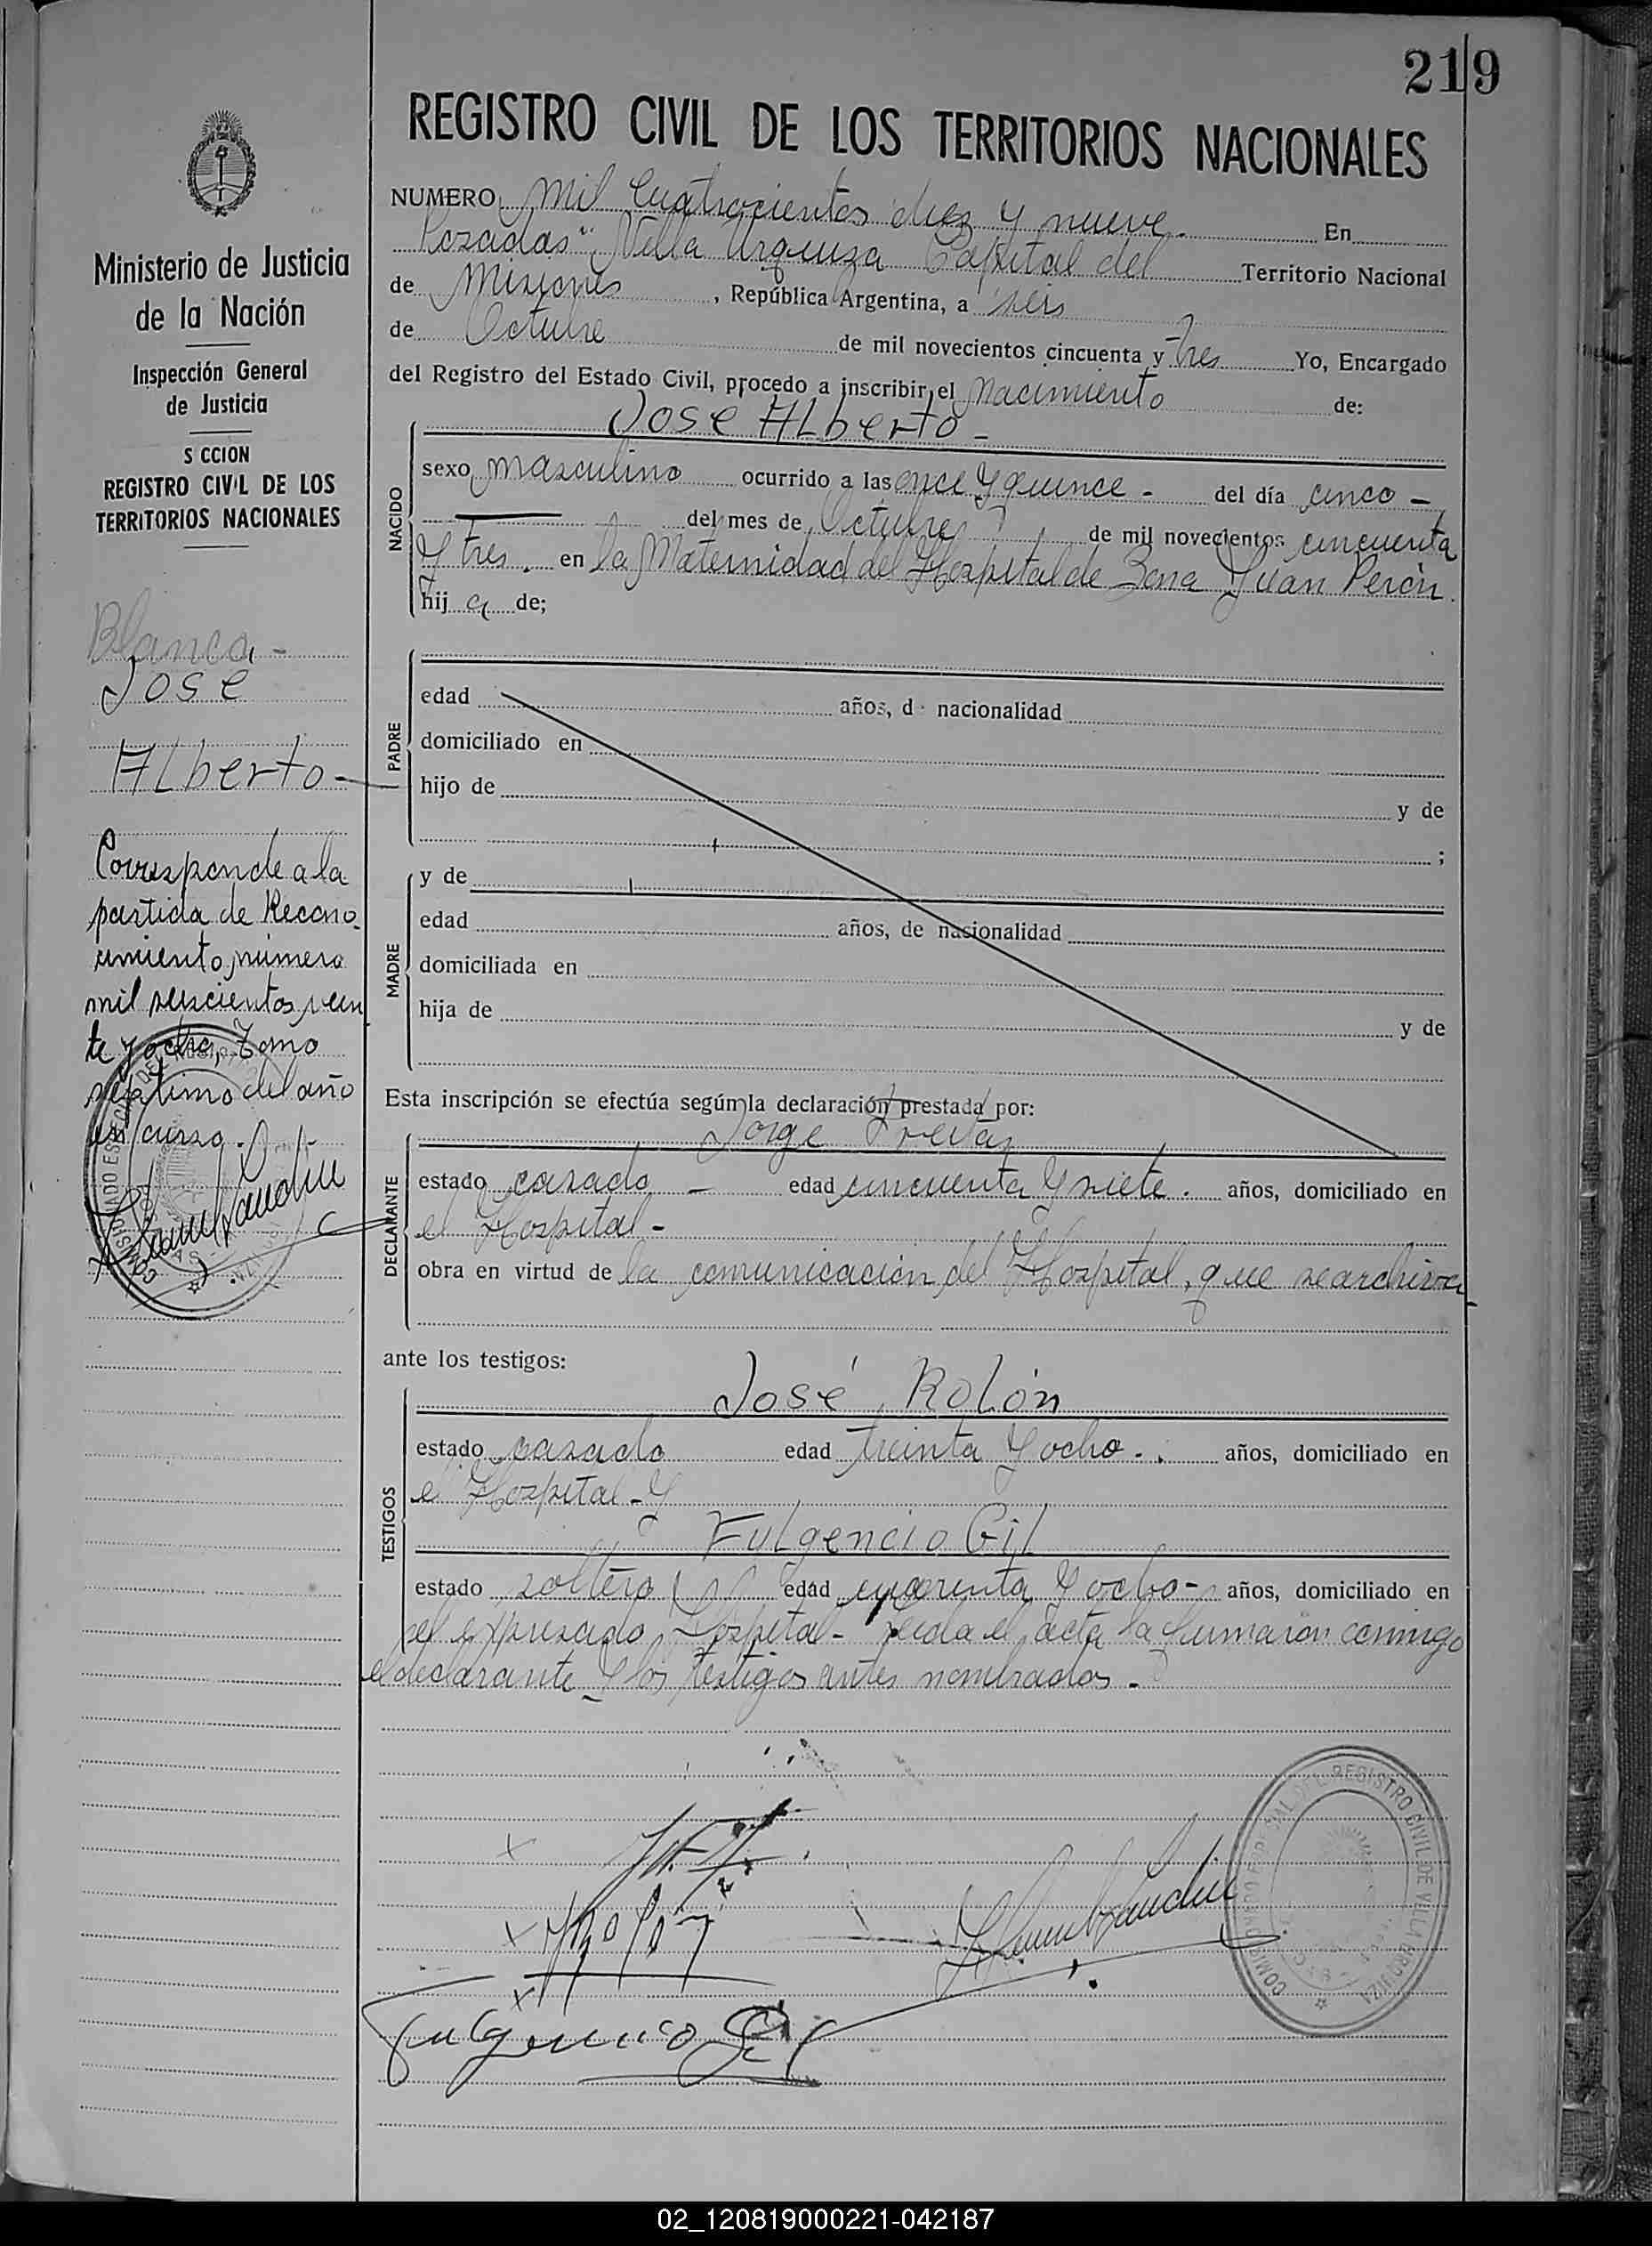 219
REGISTRO CIVIL DE LOS TERRITORIOS NACIONALES
NUMERO Mil Cuatrocientos diez y nueve. En
Posadas", Villa Urquiza Capital del Territorio Nacional
de Misiones, República Argentina, a seis
de Octubre de mil novecientos cincuenta y tres Yo, Encargado
del Registro del Estado Civil, procedo a inscribir el nacimiento de:
Jose ALberto-
NACIDO
sexo masculino ocurrido a las once y quince - del día cinco -
del mes de Octubre de mil novecientos cincuenta
y tres. en la Maternidad del Hospital de Zona Juan Perón.
hij a de;
PADRE
edad años, d nacionalidad
domiciliado en
hijo de y de
;
MADRE
y de
edad años, de nacionalidad
domiciliada en
hija de y de
Esta inscripción se efectúa según la declaración prestada por:
DECLARANTE
Jorge
estado casado - edad cincuenta y siete. años, domiciliado en
el Hospital-
obra en virtud de la comunicación del Hospital, que se archiva
ante los testigos:
TESTIGOS
José Rolón
estado casado edad treinta y ocho. años, domiciliado en
el Hospital-y
Fulgencio Gil
estado soltero edad cuarenta y ocho- años, domiciliado en
el expresado Hospital- Leida el acta la firmaron conmigo
el declarante y los testigos antes nombrados.-
Fulgencio Gil
COMISIONADO ESPECIAL DEL REGISTRO CIVIL DE VILLA URQUIZA
Ministerio de Justicia
de la Nación
Inspección General
de Justicia
S CCION
REGISTRO CIVIL DE LOS
TERRITORIOS NACIONALES
Blanca-
Jose
ALberto-
Corresponde a la
partida de Recono-
cimiento, número
mil seiscientos vein
te y ocho, Tomo
séptimo del año
en curso.
02_120819000221-042187